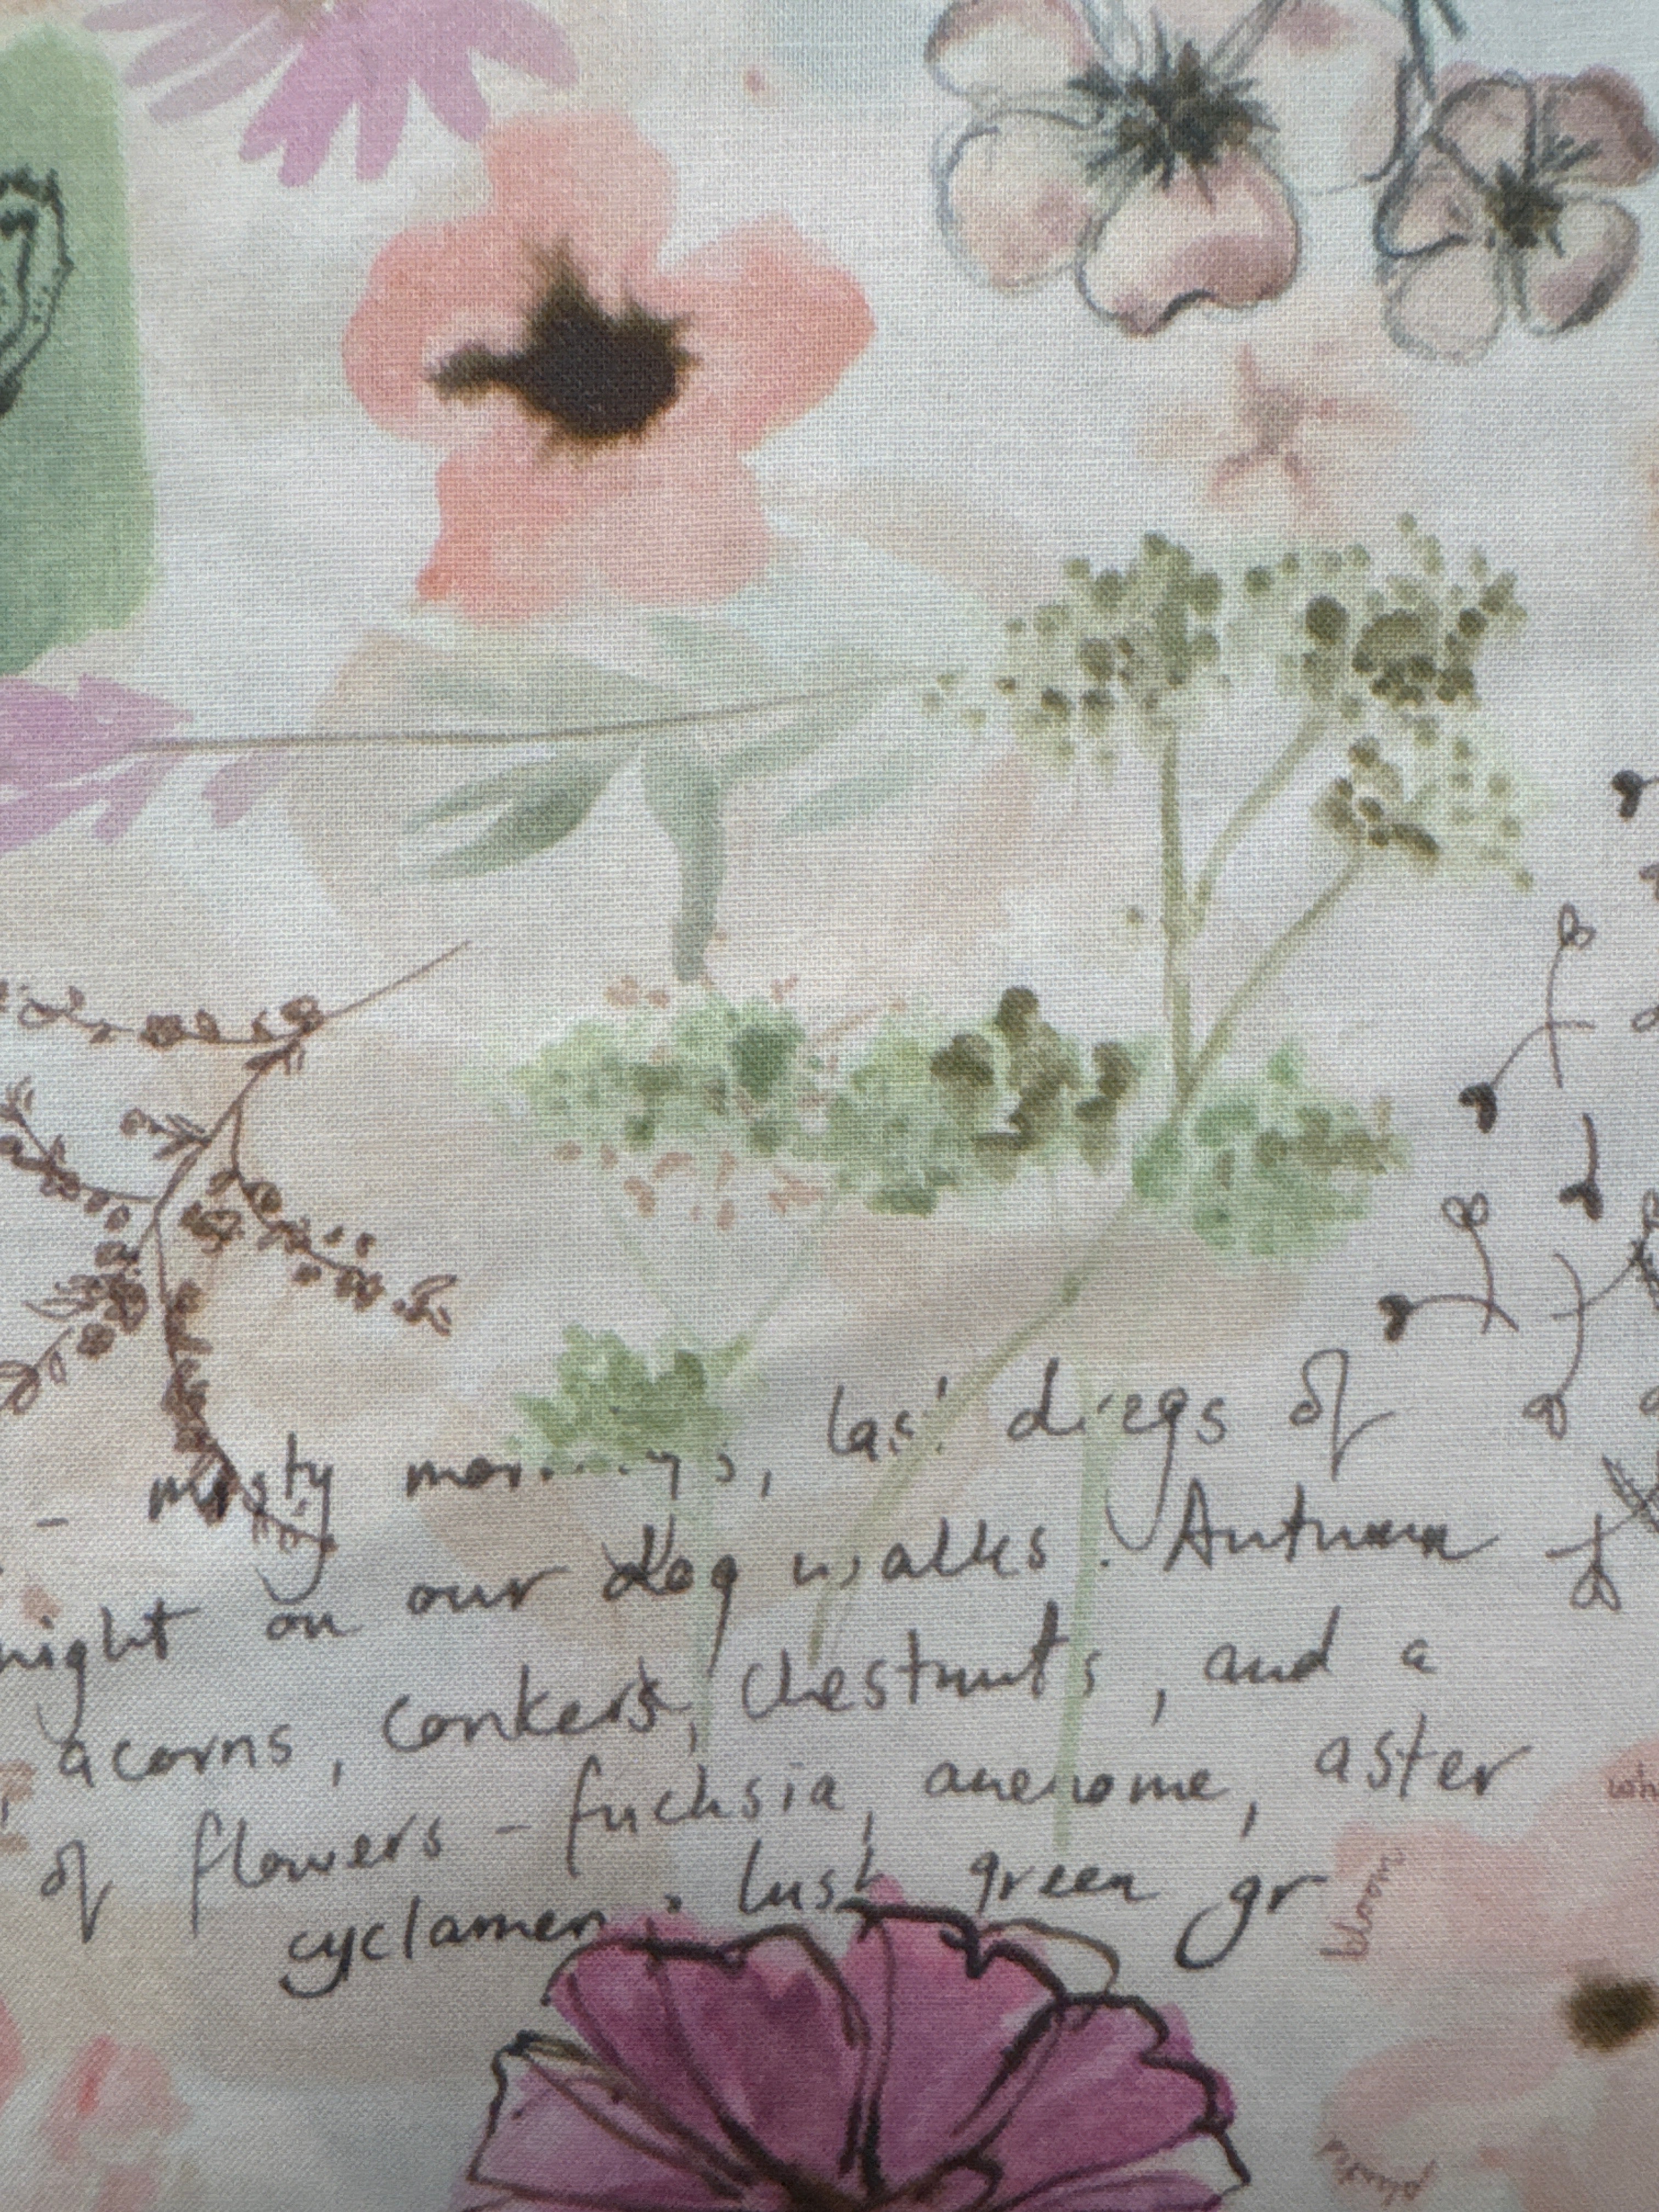 - misty mornings, last dregs of
night on our dog walks. Autumn
acorns, conkers, chestnuts, and a
of flowers - fuchsia, anemome, aster
cyclamen; lush green gr
wh
bloom